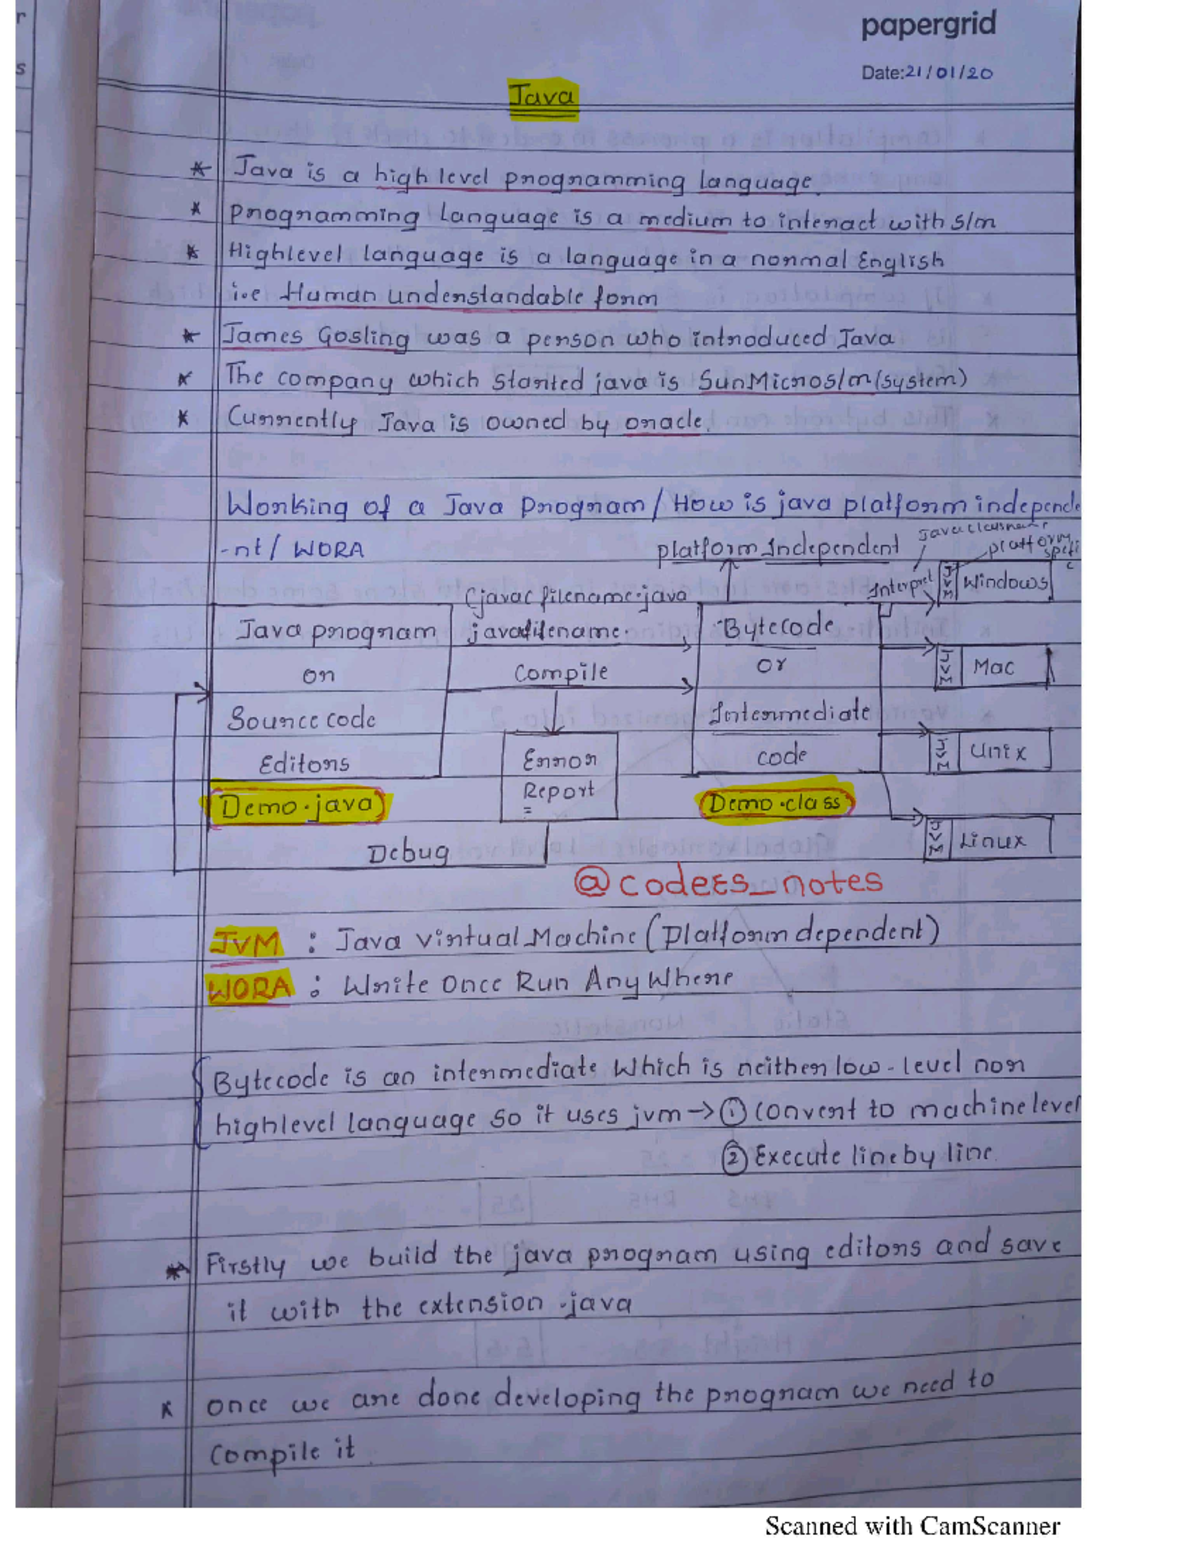 r
s
papergrid
Date:21/01/20
Java
* Java is a high level programming language.
* programming language is a medium to interact with s/m
* Highlevel language is a language in a normal English
i.e Human understandable form
* James Gosling was a person who introduced Java
* The company which started java is SunMicros/m(system)
* Currently Java is owned by oracle.
Working of a Java Program/How is java platform independe
-nt/ WORA
platform Independent
platform
speci
c
Interpret
JVM Windows
(javac filename.java
Java program
javafilename.
Bytecode
or
Compile
or
JVM Mac
Source code
Intermediate
Editors
Error
code
JVM Unix
Demo.java
Report
Demo.class
JVM Linux
Debug
@codeεs_notes
JVM : Java Virtual Machine (Platform dependent)
WORA : Write Once Run AnyWhere
Bytecode is an intermediate Which is neither low-level nor
highlevel language so it uses jvm → ① convert to machine level
② Execute line by line.
* Firstly we build the java program using editors and save
it with the extension .java
* once we are done developing the program we need to
compile it.
Scanned with CamScanner